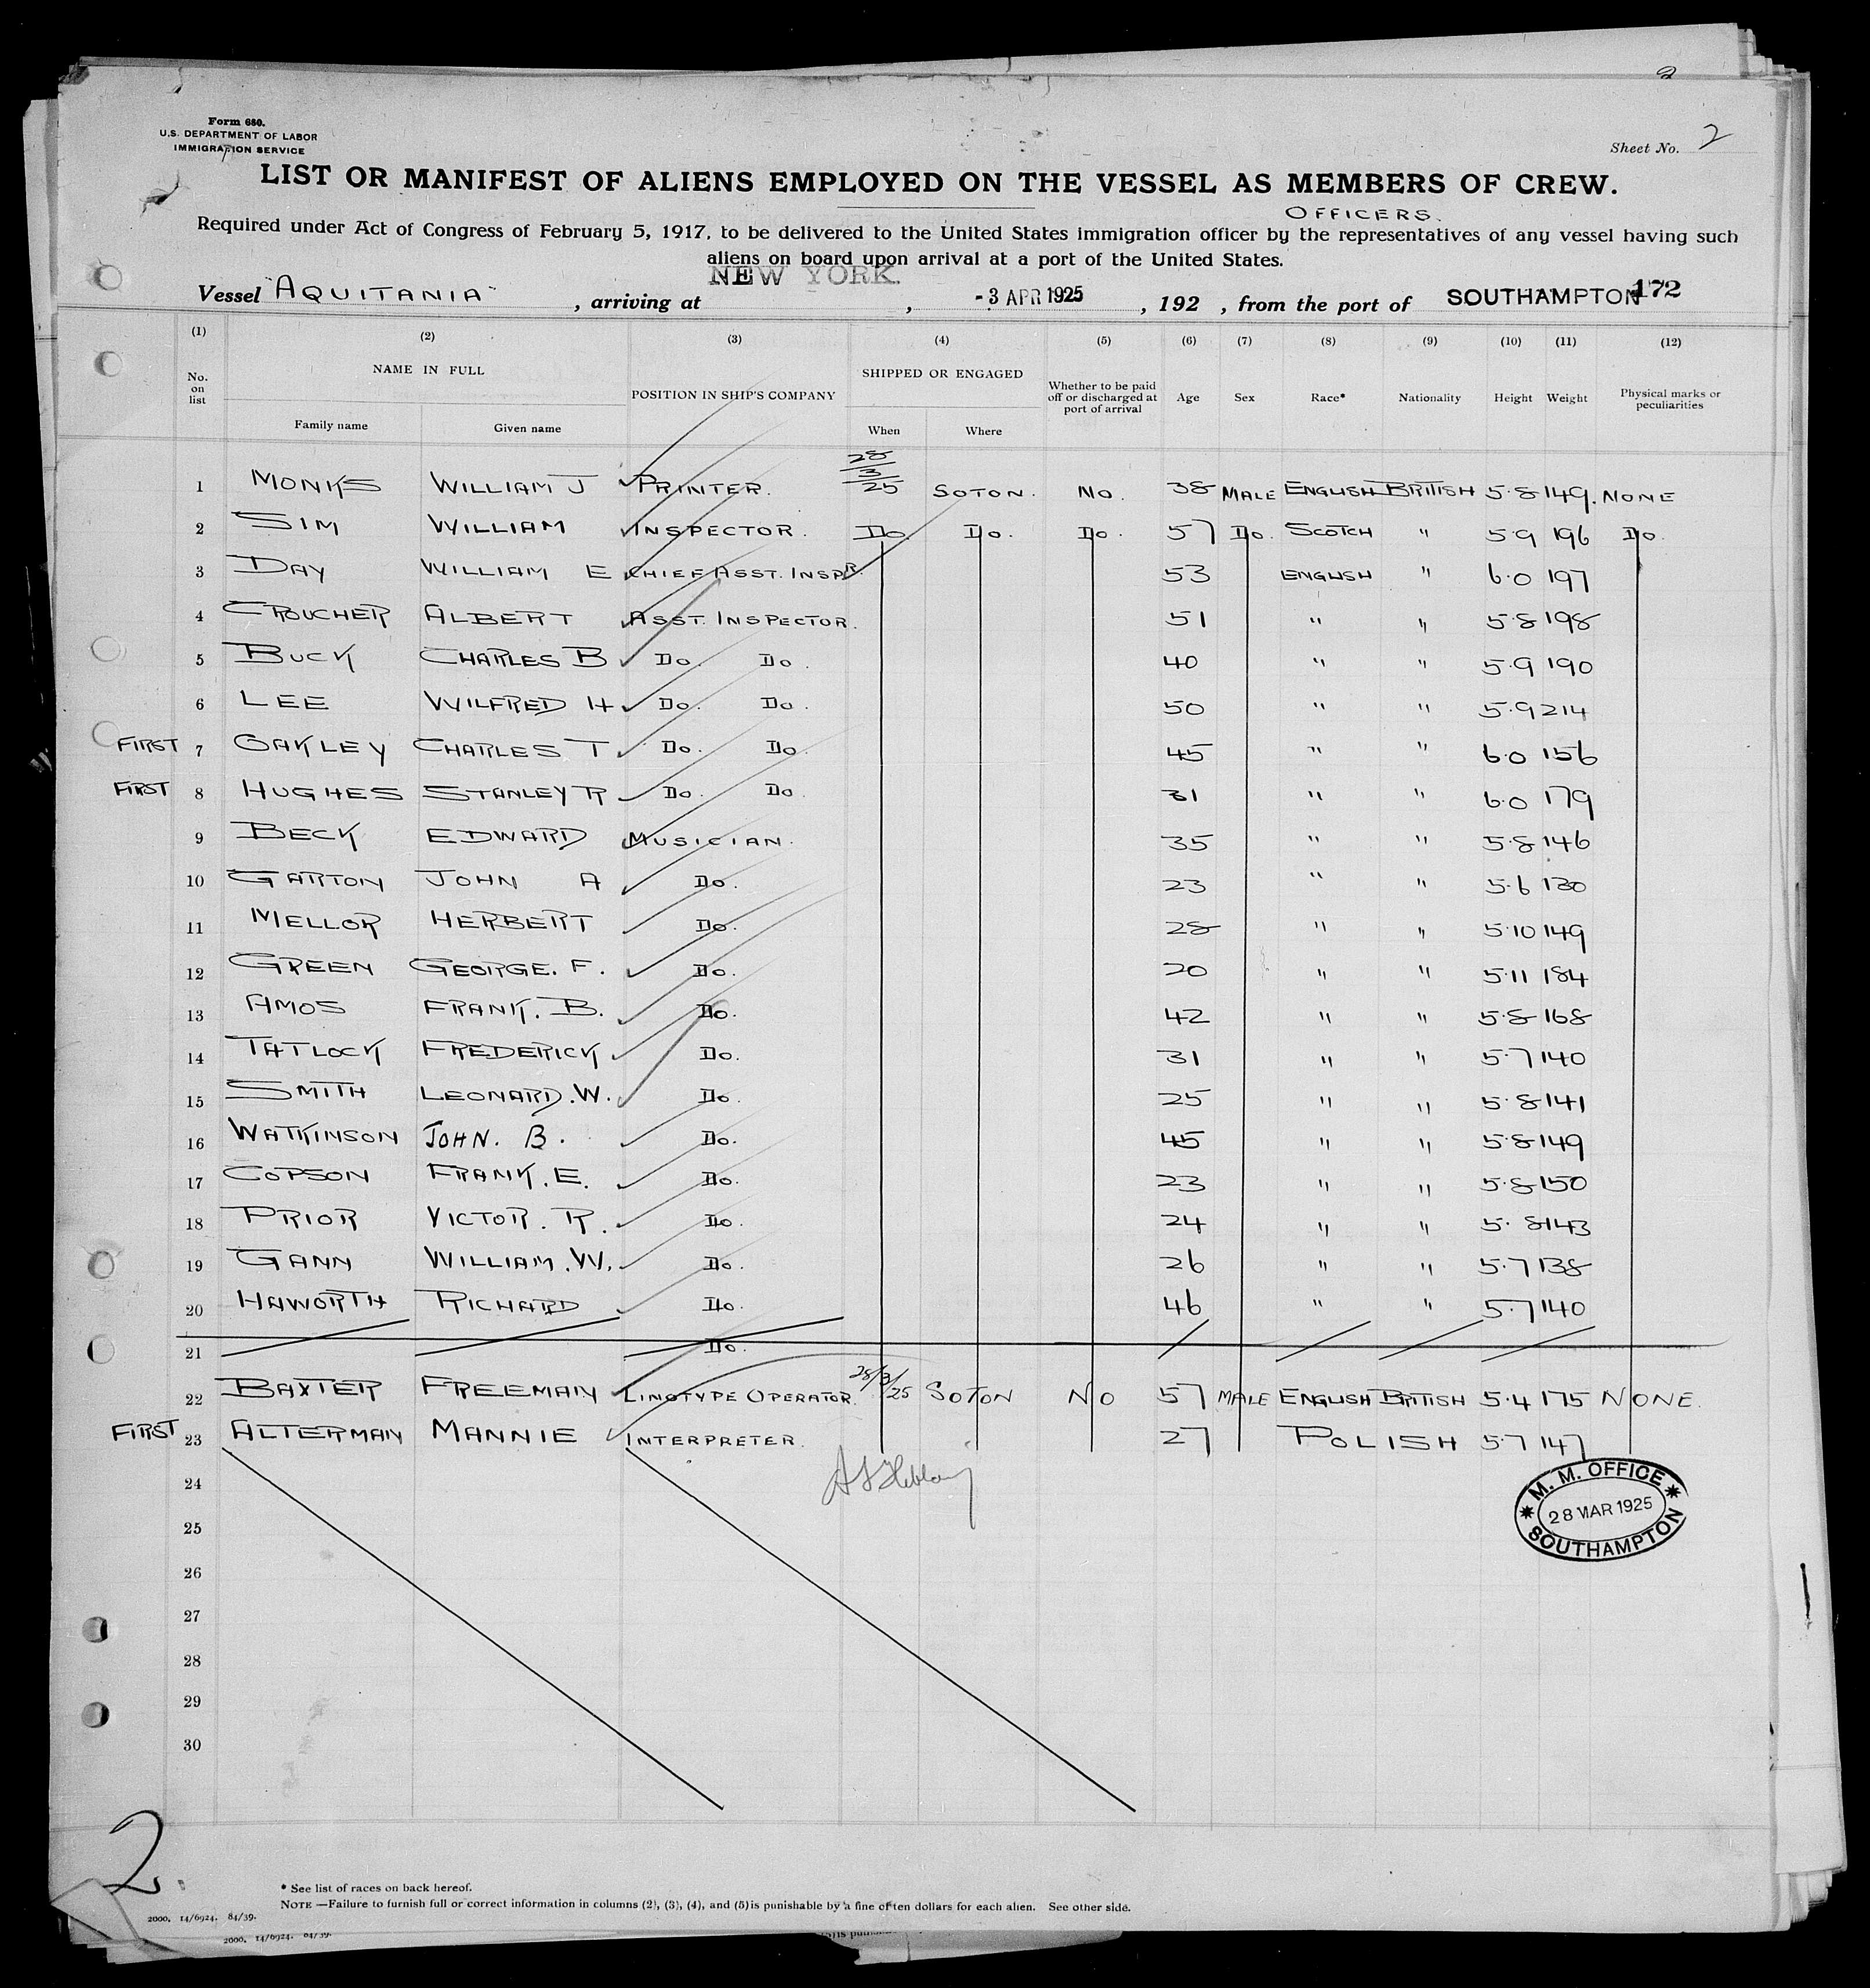 2
Form 680.
U.S. DEPARTMENT OF LABOR
IMMIGRATION SERVICE
Sheet No. 2
LIST OR MANIFEST OF ALIENS EMPLOYED ON THE VESSEL AS MEMBERS OF CREW.
OFFICERS.
Required under Act of Congress of February 5, 1917, to be delivered to the United States immigration officer by the representatives of any vessel having such
aliens on board upon arrival at a port of the United States.
Vessel "AQUITANIA", arriving at NEW YORK., -3 APR 1925, 192 , from the port of SOUTHAMPTON 172
(1) (2) (3) (4) (5) (6) (7) (8) (9) (10) (11) (12)
No. on list NAME IN FULL POSITION IN SHIP'S COMPANY SHIPPED OR ENGAGED Whether to be paid off or discharged at port of arrival Age Sex Race* Nationality Height Weight Physical marks or peculiarities
Family name Given name When Where
1 MONKS WILLIAM J PRINTER. 28/3/25 SOTON. NO. 38 MALE ENGLISH BRITISH 5.8 149. NONE
2 SIM WILLIAM INSPECTOR. Do. Do. Do. 57 Do. SCOTCH " 5.9 196 Do.
3 DAY WILLIAM E CHIEF ASST. INSPR. 53 ENGLISH " 6.0 197
4 CROUCHER ALBERT ASST. INSPECTOR. 51 " " 5.8 198
5 BUCK CHARLES B Do. Do. 40 " " 5.9 190
6 LEE WILFRED H Do. Do. 50 " " 5.9 214
FIRST 7 OAKLEY CHARLES T Do. Do. 45 " " 6.0 156
FIRST 8 HUGHES STANLEY R Do. Do. 31 " " 6.0 179
9 BECK EDWARD MUSICIAN. 35 " " 5.8 146
10 GARTON JOHN A Do. 23 " " 5.6 130
11 MELLOR HERBERT Do. 28 " " 5.10 149
12 GREEN GEORGE. F. Do. 20 " " 5.11 184
13 AMOS FRANK. B. Do. 42 " " 5.8 168
14 TATLOCK FREDERICK Do. 31 " " 5.7 140
15 SMITH LEONARD. W. Do. 25 " " 5.8 141
16 WATKINSON JOHN. B. Do. 45 " " 5.8 149
17 COPSON FRANK. E. Do. 23 " " 5.8 150
18 PRIOR VICTOR. R. Do. 24 " " 5.8 143
19 GANN WILLIAM. W. Do. 26 " " 5.7 138
20 HAWORTH RICHARD Do. 46 " " 5.7 140
21 Do.
22 BAXTER FREEMAN LINOTYPE OPERATOR. 28/3/25 SOTON NO 57 MALE ENGLISH BRITISH 5.4 175 NONE.
FIRST 23 ALTERMAN MANNIE INTERPRETER. 27 POLISH 5.7 147
24
25
26
27
28
29
30
M. M. OFFICE
28 MAR 1925
SOUTHAMPTON
2
* See list of races on back hereof.
NOTE —Failure to furnish full or correct information in columns (2), (3), (4), and (5) is punishable by a fine of ten dollars for each alien. See other side.
2000. 14/6924. 84/39.
2000. 14/6924. 84/39.